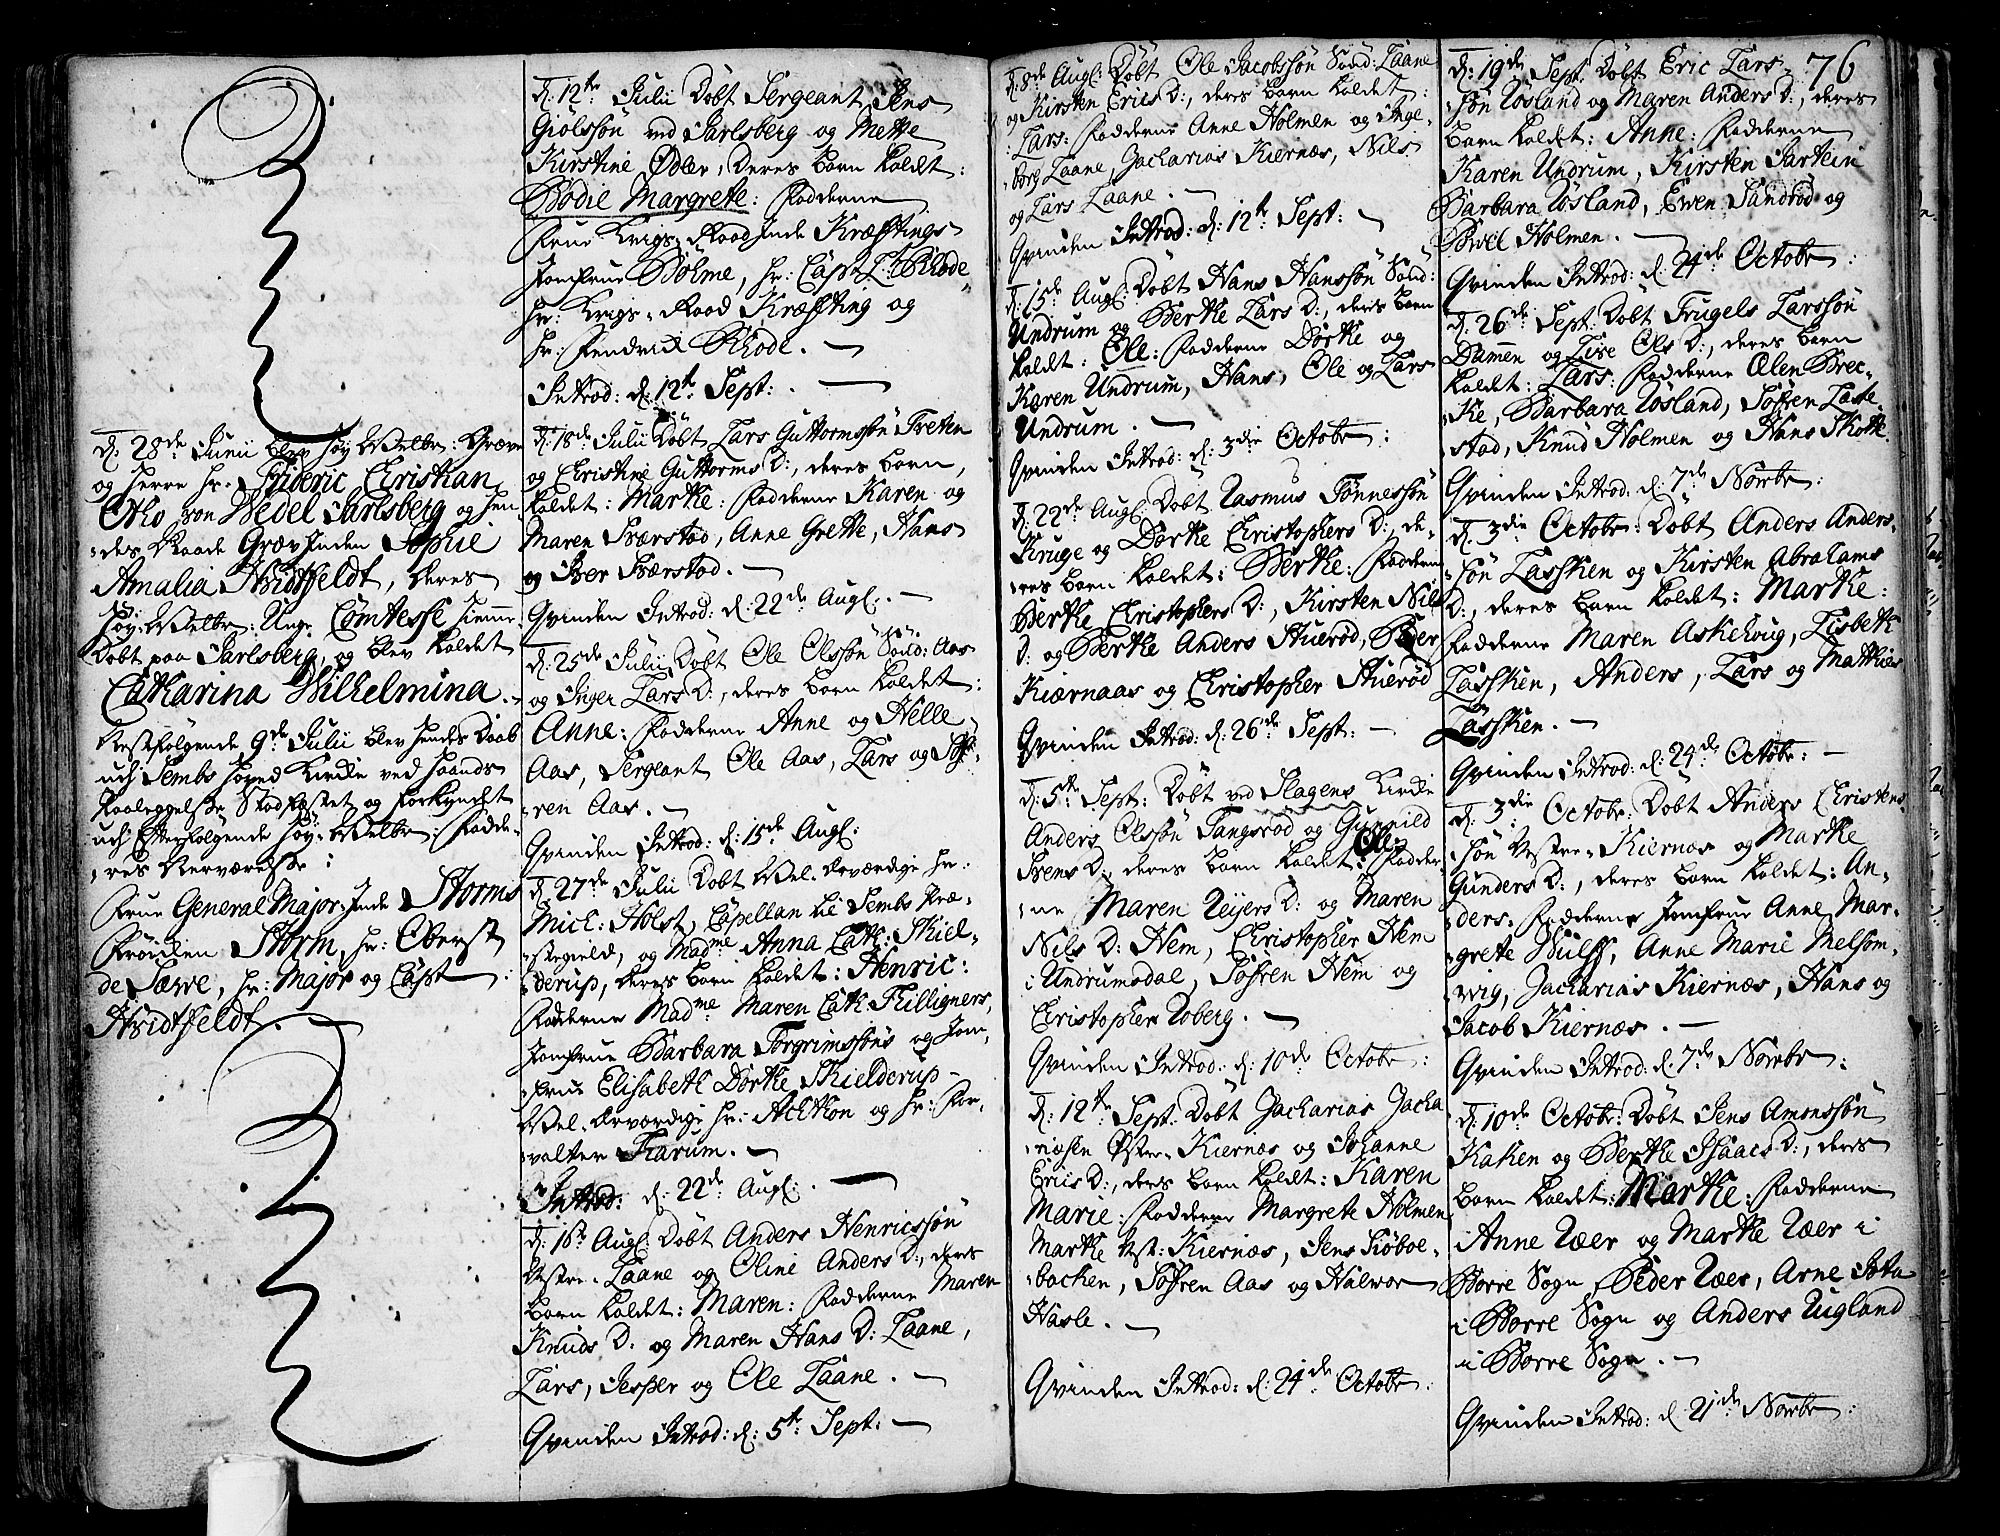 D: 28de Junii blev Høy-Welbr: Græve
og Herre Hr: Frideric Christian
Otto von Wedel Jarlsberg og Hen-
des Naade Grævinden Sophie
Amalia Hvidtfeldt, deres
Høy-Welbr: Unge Comtesse hiemme-
døbt paa Jarlsberg, og blev kaldet
Catharina Wilhelmina.
Nestfølgende 9de Julii blev hendes Daab
udj Sembs Hoved Kirke ved Haands
Paaleggelse Stadfæstet og forkyndet
udj Efterfølgende Høy-Welbr: Fadde-
res Nærværelse:
Frue General Major-inde Storms
Frøiden Storm, Hr: Oberst
de Sæve, Hr: Major og Capt:
Hvidtfeldt.
D: 12te Julii Døbt Sergeant Jens
Giølssøn ved Jarlsberg og Mette
Kirstine Ødler, deres barn kaldt:
Bodie Margrete: Fadderne
Frue Krigs-Raadinde Kræfftings
Jomfrue Bøhme, Hr: Capt: L: Rhode
Hr: Krigs-Raad Kræffting og
Hr: Fendrick Rhode.
Introd: d: 12te Sept:
D: 18de Julii Døbt Lars Guttormssøn Freten
og Christine Guttorms D:, deres barn,
kaldet: Marthe: Fadderne Karen og
Maren Bærstad, Anne Grette, Hans
og Iver Bærstad.
Qvinden Introd: d: 22de Aug:
D: 25de Julii Døbt Ole Olssøn Sønd: Aas
og Inger Lars D:, deres barn kaldet:
Anne: Fadderne Anne og Helle
Aas, Sergeant Ole Aas, Lars og Søf-
ren Aas.
Qvinden Introd: d: 15de Aug:
D: 27de Julii Døbt Wel-Ærværdige Hr:
Mich: Holst, Capellan til Sembs Præ-
stegield, og Madme Anna Cath: Skiel-
derup, deres barn kaldet: Henric:
Fadderne Madme Maren Cath: Filligners,
Jomfrue Barbara Torgrimssøns og Jom-
frue Elisabeth Dorthe Skielderup
Wel-Ærværdige Hr: Achthon og Hr: For-
valter Karum.
Introd: d: 22de Aug:
D: 1ste Aug: Døbt Anders Henricssøn
Vestre-Laane og Oline Anders D:, deres
barn kaldet: Maren: Fadderne Maren
Knuds D: og Maren Hans D: Laane,
Lars, Jesper og Ole Laane.
Qvinden Introd: d: 5te Sept:
D: 8de Aug: Døbt Ole Jacobssøn Sønd: Laane
og Kirsten Erics D:, deres barn kaldet:
Lars: Fadderne Anne Holmen og Inge-
borg Laane, Zacharias Kiernæs, Nils
og Lars Laane.
Qvinden Introd: d: 12te Sept:
D: 15de Aug: Døbt Hans Hanssøn Sønd:
Undrum og Berthe Lars D:, deres barn
kaldet: Ole: Fadderne Dorthe og
Karen Undrum, Hans, Ole og Lars
Undrum.
Qvinden Introd: d: 3die Octobr:
D: 22de Aug: Døbt Rasmus Tønnessøn
Kruge og Dorthe Christophers D:, de-
res barn kaldet: Berthe: Fadderne
Berthe Christophers D:, Kirsten Nils
D: og Berthe Anders Stuerød, Peder
Kiærnaas og Christopher Stuerød
Qvinden Introd: d: 26de Sept:
D: 5te Sept: Døbt ved Slagens Kirke
Anders Olssøn Tangsrød og Gunnild
Ivens D:, deres barn kaldet: Ole: Fadder-
ne Maren Reijers D: og Maren
Nils D: Hem, Christopher Hem
i Undrumsdal, Søfren Hem og
Christopher Roberg.
Qvinden Introd: d: 10de Octobr:
D: 12te Sept: Døbt Zacharias Zacha-
riæsen Østre-Kiernæs og Johanne
Erics D:, deres barn kaldt: Karen
Marie: Fadderne Margrete Holmen
Marthe Vest: Kiernæs, Jens Siøboe-
bachen, Søfren Aas og Halvor
Hasle.
Qvinden Introd: d: 24de Octobr:
76
D: 19de Sept: Døbt Eric Lars-
søn Røsland og Maren Anders D:, deres
barn kaldet: Anne: Fadderne
Karen Undrum, Kirsten Jartein
Barbara Røsland, Ewen Sandrød og
Bwel Holmen.
Qvinden Introd: d: 24de Octobr:
D: 26de Sept: Døbt Trugels Larssøn
Dammen og Live Ols D:, deres barn
kaldet: Lars: Fadderne Ølen Brec-
ke, Barbara Røsland, Søfren Lache-
stad, Knud Holmen og Hans Skotte
Qvinden Introd: d: 7de Novbr:
D: 3die Octobr: Døbt Anders Anders-
søn Lassken og Kirsten Abrahams
D:, deres barn kaldet: Marthe:
Fadderne Maren Askehoug, Lisbeth
Lassken, Anders, Lars og Mathies
Lassken.
Qvinden Introd: d: 24de Octobr:
D: 3die Octobr: Døbt Anders Christens-
søn Vestre-Kiernæs og Marthe
Gunders D:, deres barn kaldet: An-
ders: Fadderne Jomfrue Anne Mar-
grete Wulff, Anne Marie Melsom-
wig, Zacharias Kiernæs, Hans og
Jacob Kiernæs.
Qvinden Introd: d: 7de Novbr:
D: 10de Octobr: Døbt Jens Amonssøn
Kaken og Berthe Isaacs D:, deres
barn kaldet: Marthe: Fadderne
Anne Ræer og Marthe Ræer i
Borre Sogn, Peder Ræer, Arne
i Borre Sogn og Anders Rugland
i Borre Sogn.
Qvinden Introd: d: 21de Novbr: